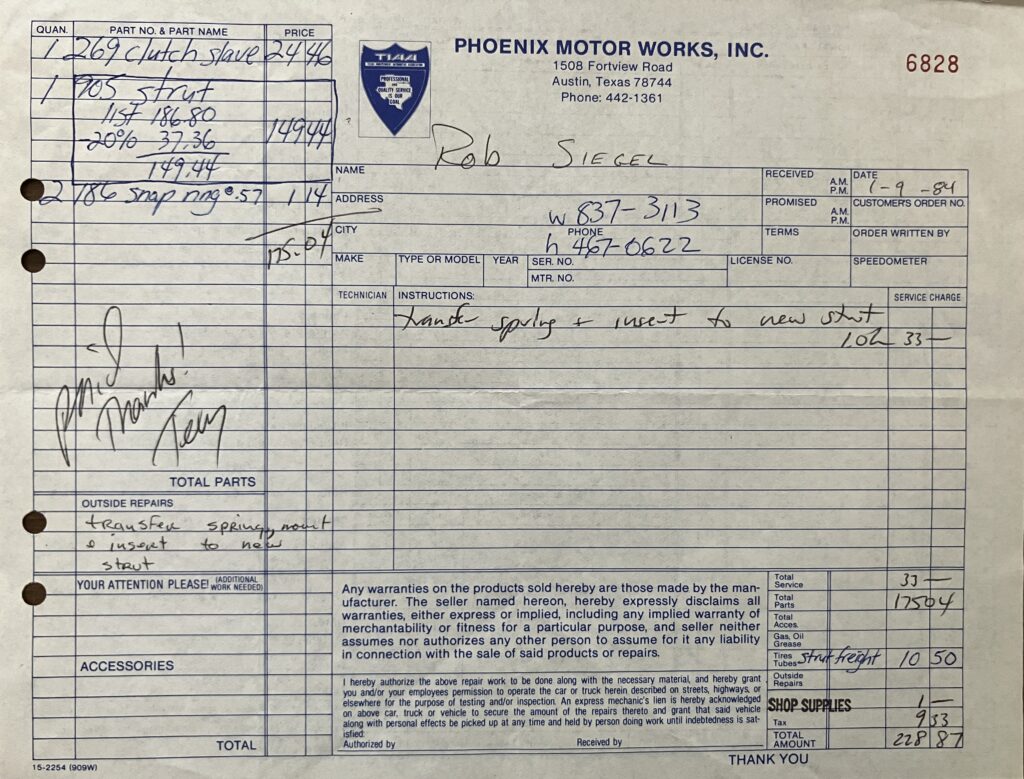 QUAN. PART NO. & PART NAME PRICE
1 269 clutch slave 24 46
1 905 strut
list 186.80
-20% 37.36 149 44
149.44
2 786 snap ring @ .57 1 14
175.04
Thanks!
Terry
TOTAL PARTS
OUTSIDE REPAIRS
transfer spring, mount
& insert to new
strut
YOUR ATTENTION PLEASE! (ADDITIONAL WORK NEEDED)
ACCESSORIES
TOTAL
15-2254 (909W)
TIAA
PROFESSIONAL
AND
QUALITY SERVICE
IS OUR
GOAL
PHOENIX MOTOR WORKS, INC.
1508 Fortview Road
Austin, Texas 78744
Phone: 442-1361
6828
Rob SIEGEL
NAME RECEIVED A.M. P.M. DATE 1-9-84
ADDRESS PROMISED A.M. P.M. CUSTOMER'S ORDER NO.
w 837-3113
CITY PHONE TERMS ORDER WRITTEN BY
h 467-0622
MAKE TYPE OR MODEL YEAR SER. NO. LICENSE NO. SPEEDOMETER
MTR. NO.
TECHNICIAN INSTRUCTIONS: SERVICE CHARGE
transfer spring + insert to new strut
1.0h 33 —
Any warranties on the products sold hereby are those made by the man-
ufacturer. The seller named hereon, hereby expressly disclaims all
warranties, either express or implied, including any implied warranty of
merchantability or fitness for a particular purpose, and seller neither
assumes nor authorizes any other person to assume for it any liability
in connection with the sale of said products or repairs.
I hereby authorize the above repair work to be done along with the necessary material, and hereby grant
you and/or your employees permission to operate the car or truck herein described on streets, highways, or
elsewhere for the purpose of testing and/or inspection. An express mechanic's lien is hereby acknowledged
on above car, truck or vehicle to secure the amount of the repairs thereto and grant that said vehicle
along with personal effects be picked up at any time and held by person doing work until indebtedness is sat-
isfied.
Authorized by Received by
Total Service 33 —
Total Parts 175 04
Total Acces.
Gas, Oil Grease
Tires Tubes strut freight 10 50
Outside Repairs
SHOP SUPPLIES 1 —
Tax 9 33
TOTAL AMOUNT 228 87
THANK YOU